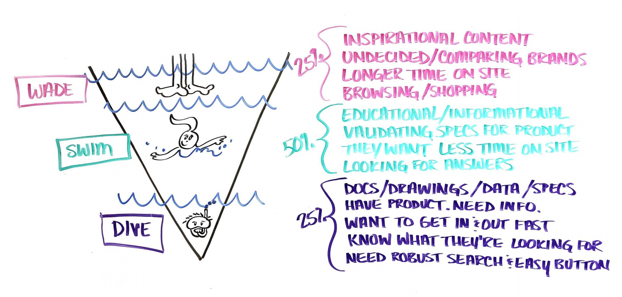 WADE
25%
INSPIRATIONAL CONTENT
UNDECIDED/COMPARING BRANDS
LONGER TIME ON SITE
BROWSING/SHOPPING
SWIM
50%
EDUCATIONAL/INFORMATIONAL
VALIDATING SPECS FOR PRODUCT
THEY WANT LESS TIME ON SITE
LOOKING FOR ANSWERS
DIVE
25%
DOCS/DRAWINGS/DATA/SPECS
HAVE PRODUCT. NEED INFO.
WANT TO GET IN & OUT FAST
KNOW WHAT THEY'RE LOOKING FOR
NEED ROBUST SEARCH & EASY BUTTON